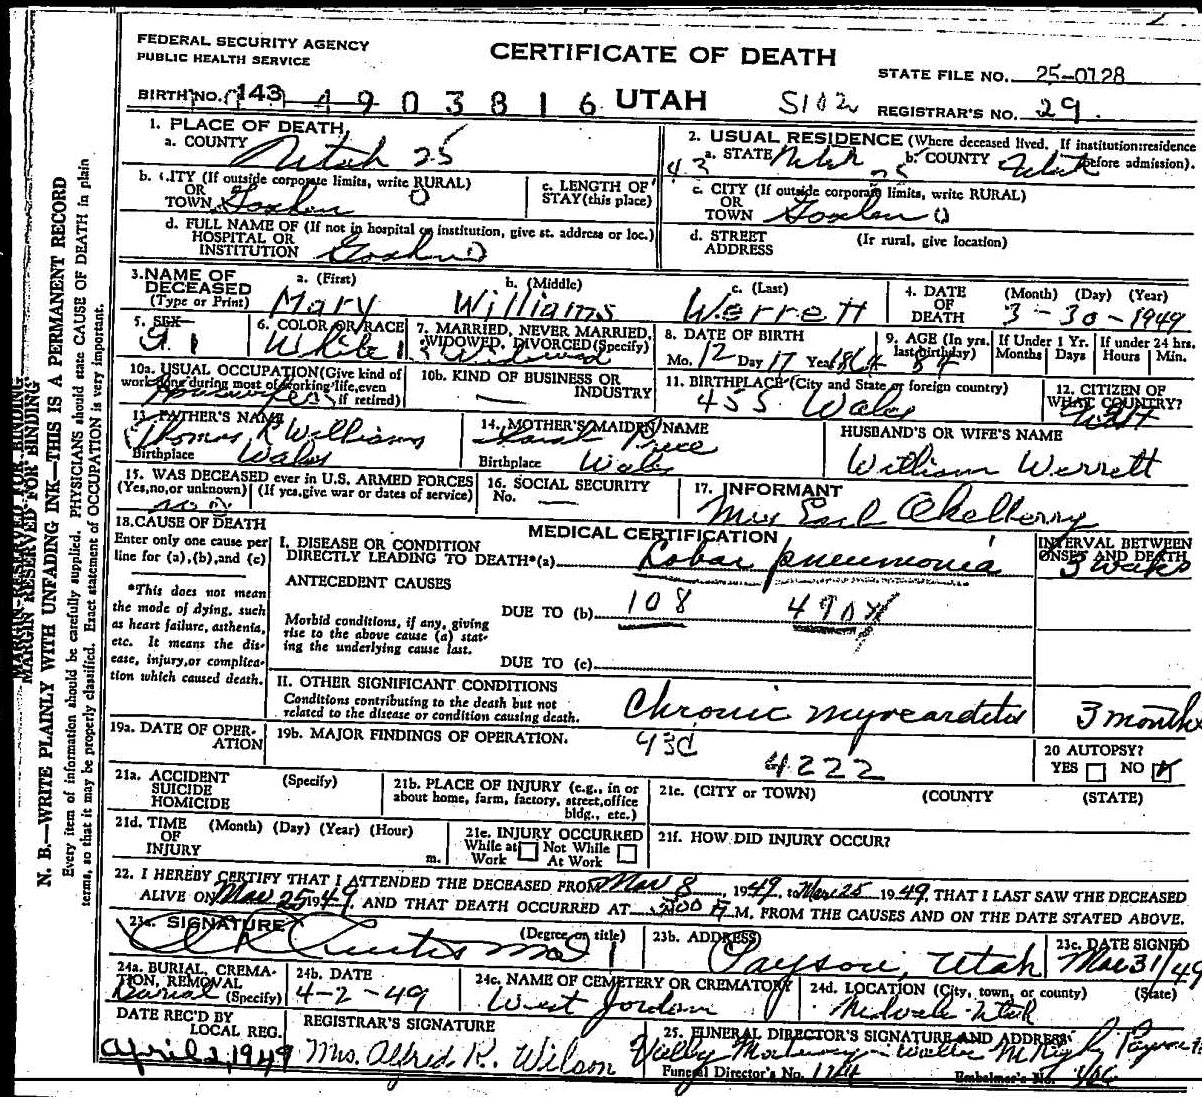 FEDERAL SECURITY AGENCY
PUBLIC HEALTH SERVICE
CERTIFICATE OF DEATH
STATE FILE NO. 25-0128
BIRTH NO. 143 4903816 UTAH S102
REGISTRAR'S NO. 29
1. PLACE OF DEATH
a. COUNTY Utah 25
2. USUAL RESIDENCE (Where deceased lived. If institution:residence before admission).
a. STATE Utah b. COUNTY Utah
43 25
b. CITY (If outside corporate limits, write RURAL)
OR
TOWN Goshen 0
c. LENGTH OF
STAY (this place)
c. CITY (If outside corporate limits, write RURAL)
OR
TOWN Goshen 0
d. FULL NAME OF (If not in hospital or institution, give st. address or loc.)
HOSPITAL OR
INSTITUTION Goshen
d. STREET
ADDRESS
(Ir rural, give location)
3.NAME OF
DECEASED
(Type or Print)
a. (First) b. (Middle) c. (Last)
Mary Williams Werrett
4. DATE
OF
DEATH
(Month) (Day) (Year)
3-30-1949
5. SEX
6. COLOR OR RACE
White 1
7. MARRIED, NEVER MARRIED,
WIDOWED, DIVORCED (Specify)
Widowed
8. DATE OF BIRTH
Mo. 12 Day 17 Year
9. AGE (In yrs.
last birthday)
If Under 1 Yr.
Months Days
If under 24 hrs.
Hours Min.
10a. USUAL OCCUPATION (Give kind of
work done during most of working life, even
if retired)
10b. KIND OF BUSINESS OR
INDUSTRY
—
11. BIRTHPLACE (City and State or foreign country)
455 Wales
12. CITIZEN OF
WHAT COUNTRY?
13. FATHER'S NAME
Thomas R Williams
Birthplace Wales
14. MOTHER'S MAIDEN NAME
Sarah Price
Birthplace Wales
HUSBAND'S OR WIFE'S NAME
William Werrett
15. WAS DECEASED ever in U.S. ARMED FORCES
(Yes,no,or unknown) (If yes,give war or dates of service)
no
16. SOCIAL SECURITY
No. —
17. INFORMANT
Mrs Earl Okelberry
18.CAUSE OF DEATH
Enter only one cause per
line for (a),(b),and (c)
*This does not mean
the mode of dying, such
as heart failure, asthenia,
etc. It means the dis-
ease, injury,or complica-
tion which caused death.
MEDICAL CERTIFICATION
I. DISEASE OR CONDITION
DIRECTLY LEADING TO DEATH*(a) Lobar pneumonia
INTERVAL BETWEEN
ONSET AND DEATH
3 weeks
ANTECEDENT CAUSES
DUE TO (b) 108 490X
Morbid conditions, if any, giving
rise to the above cause (a) stat-
ing the underlying cause last.
DUE TO (c)
II. OTHER SIGNIFICANT CONDITIONS
Conditions contributing to the death but not
related to the disease or condition causing death.
Chronic myocarditis 3 months
19a. DATE OF OPER-
ATION
19b. MAJOR FINDINGS OF OPERATION.
93C
4222
20 AUTOPSY?
YES NO
21a. ACCIDENT
SUICIDE
HOMICIDE
(Specify)
21b. PLACE OF INJURY (e.g., in or
about home, farm, factory, street,office
bldg., etc.)
21c. (CITY or TOWN) (COUNTY (STATE)
21d. TIME
OF
INJURY
(Month) (Day) (Year) (Hour)
m.
21e. INJURY OCCURRED
While at Work Not While At Work
21f. HOW DID INJURY OCCUR?
22. I HEREBY CERTIFY THAT I ATTENDED THE DECEASED FROM Mar 8, 1949, to Mar 25 1949, THAT I LAST SAW THE DECEASED
ALIVE ON Mar 25 1949, AND THAT DEATH OCCURRED AT M, FROM THE CAUSES AND ON THE DATE STATED ABOVE.
23a. SIGNATURE (Degree or title)
Curtis MD
23b. ADDRESS
Payson, Utah
23c. DATE SIGNED
Mar 31/49
24a. BURIAL, CREMA-
TION, REMOVAL
Burial (Specify)
24b. DATE
4-2-49
24c. NAME OF CEMETERY OR CREMATORY
West Jordan
24d. LOCATION (City, town, or county) (State)
Midvale Utah
DATE REC'D BY
LOCAL REG.
April 2, 1949
REGISTRAR'S SIGNATURE
Mrs. Alfred K. Wilson
25. FUNERAL DIRECTOR'S SIGNATURE AND ADDRESS
Valley Mortuary
Funeral Director's No. 124 Embalmer's No.
MARGIN RESERVED FOR BINDING
N. B.—WRITE PLAINLY WITH UNFADING INK—THIS IS A PERMANENT RECORD
Every item of information should be carefully supplied. PHYSICIANS should state CAUSE OF DEATH in plain
terms, so that it may be properly classified. Exact statement of OCCUPATION is very important.